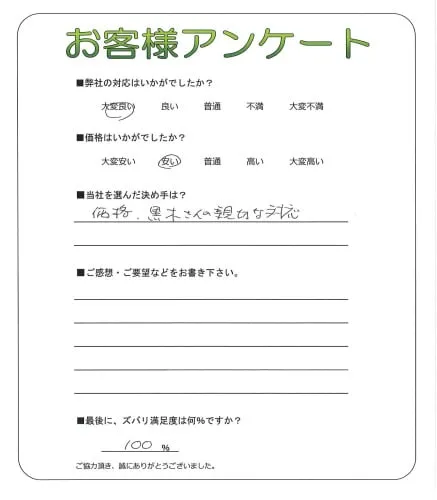 お客様アンケート
■弊社の対応はいかがでしたか？
大変良い 良い 普通 不満 大変不満
■価格はいかがでしたか？
大変安い 安い 普通 高い 大変高い
■当社を選んだ決め手は？
価格、黒木さんの親切な対応
■ご感想・ご要望などをお書き下さい。
■最後に、ズバリ満足度は何%ですか？
100 %
ご協力頂き、誠にありがとうございました。